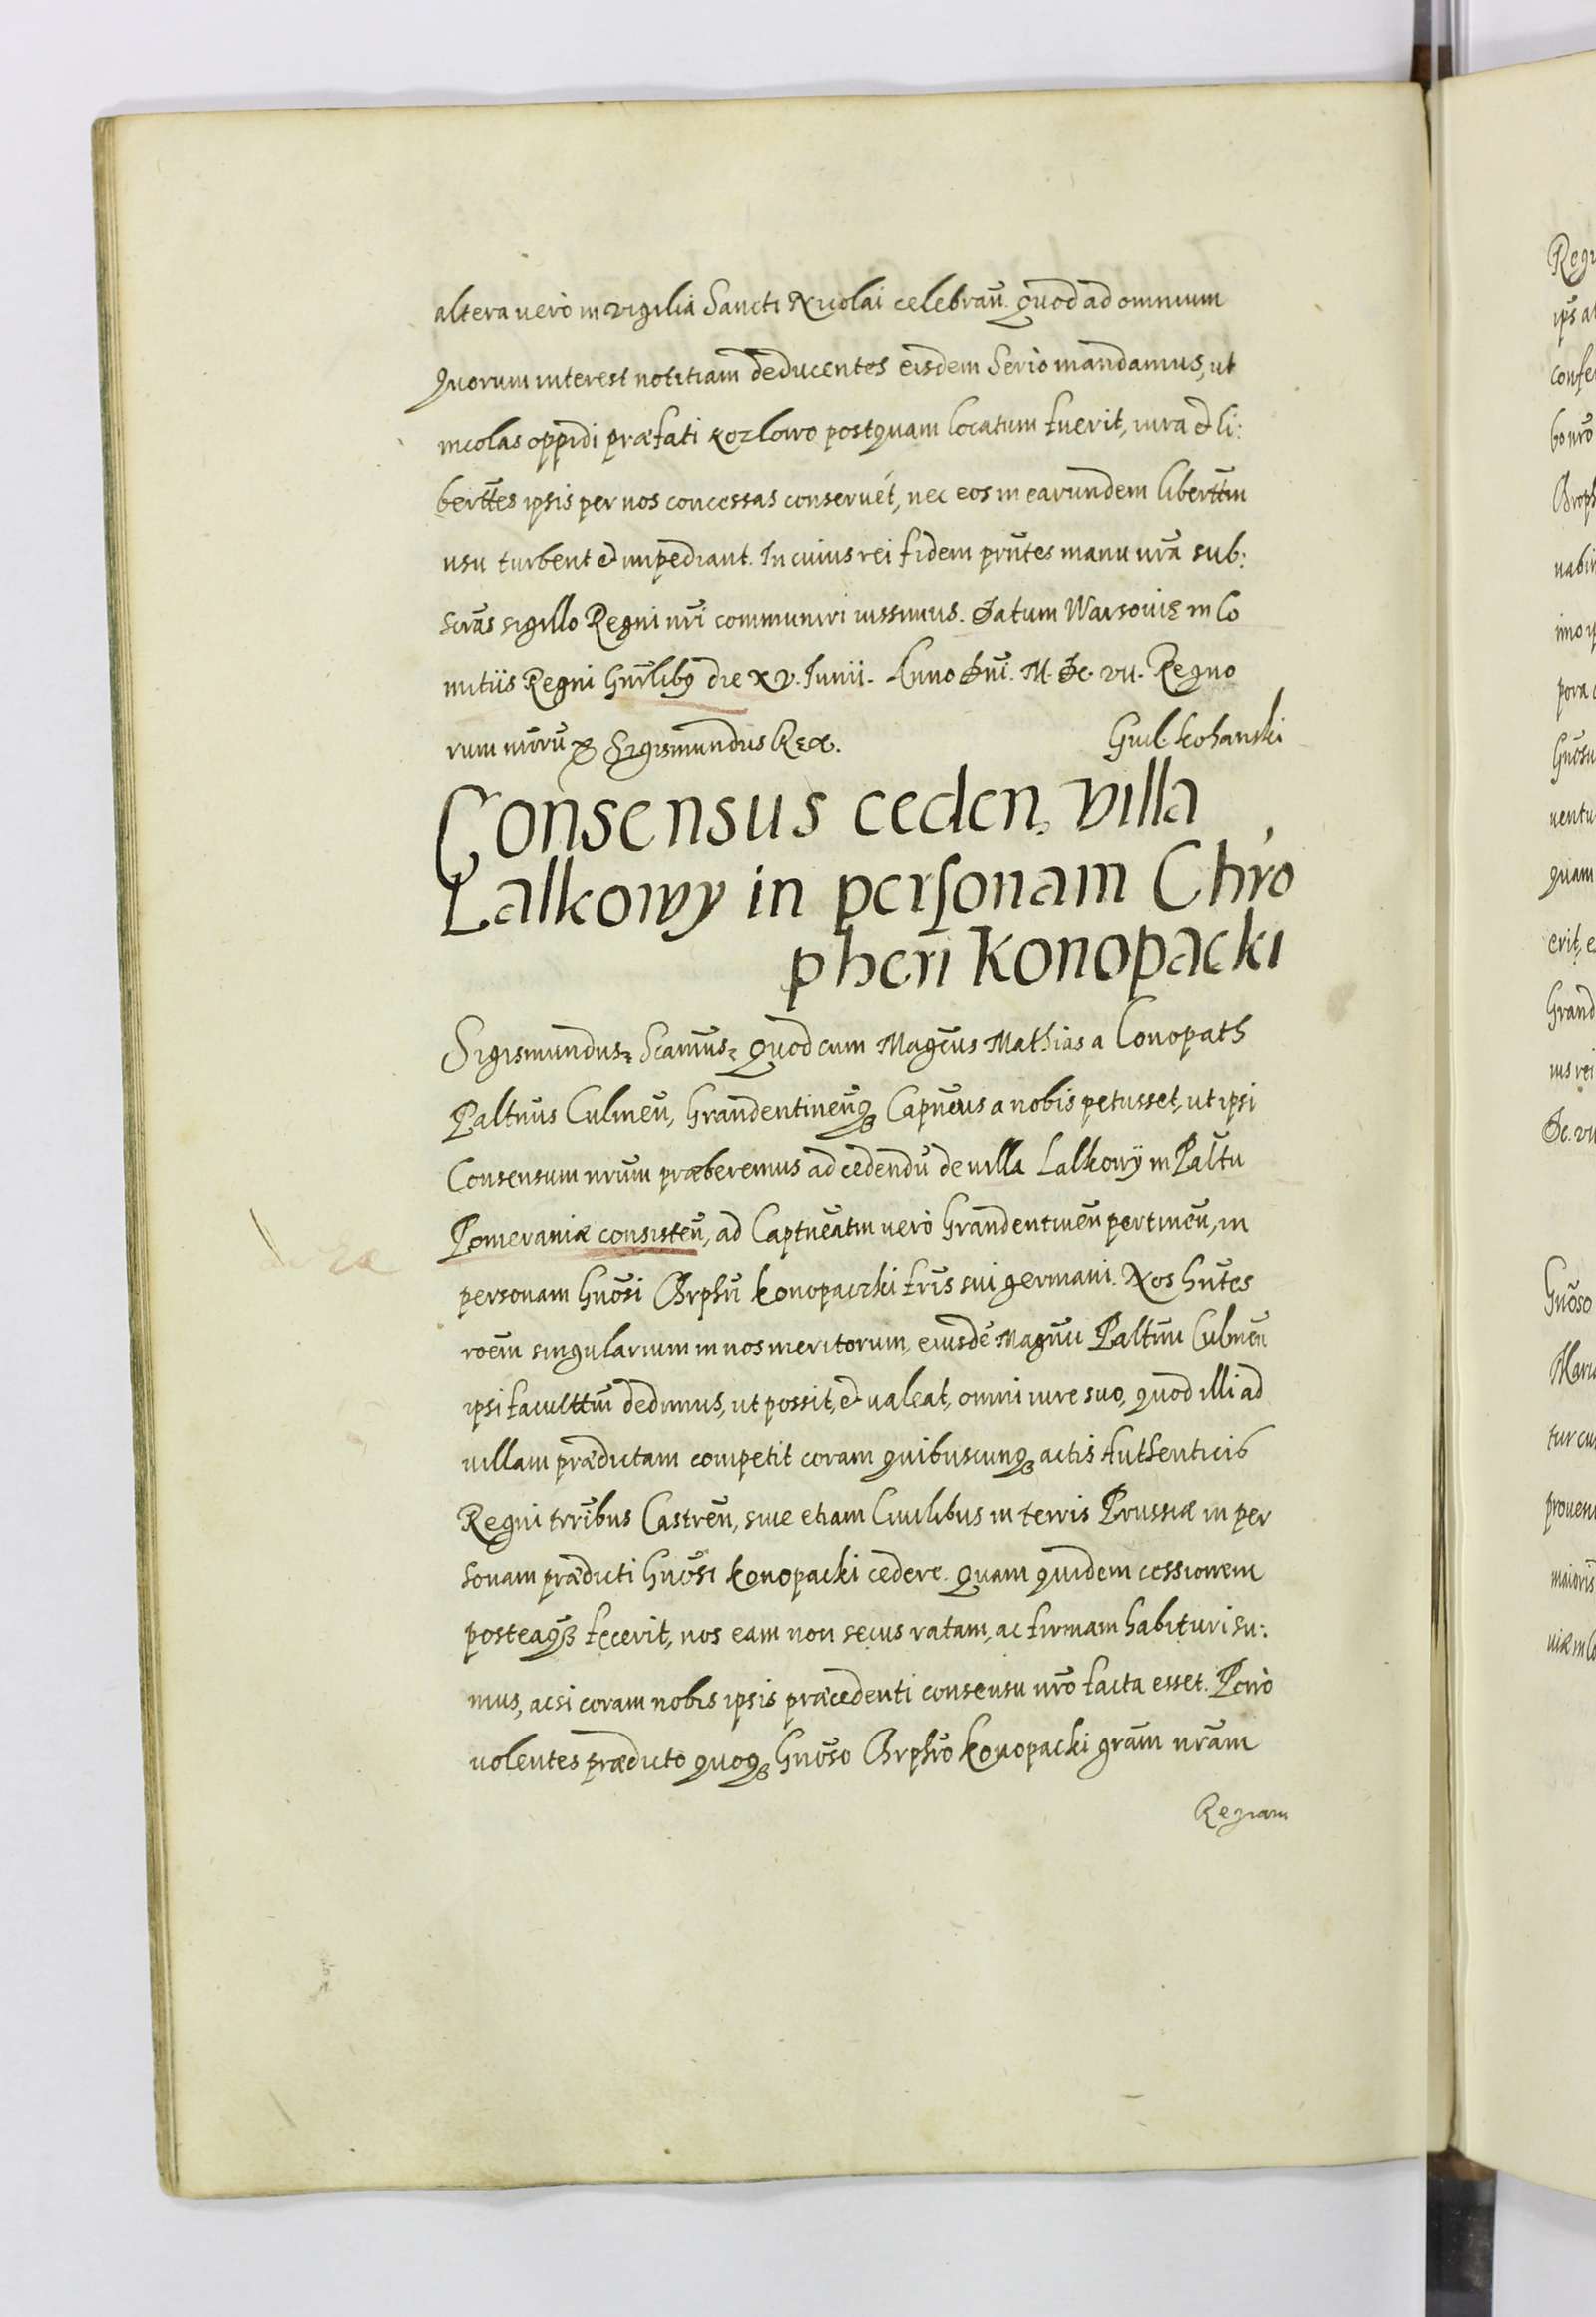 altera verò in vigilia Sancti Nicolai celebrañ. Quod ad omnium
Quorum interest notitiam deducentes eisdem Serio mandamus, ut
incolas oppidi præfati Kozlowo postquam locatum fuerit, iura et li:
bertt̃es ipsis per nos concessas conservẽt, nec eos in earundem libertt̃m
usu turbent et impediant. In cuius rei fidem prñtes manu nrã sub:
scrãs sigillo Regni nrĩ communiri iussimus. Datum Warsovię in Co
mitiis Regni Gnrãlibꝫ die XV. Iunii. Anno Dnĩ. M. Dc. VII. Regno
rum nrõrũ & Sigismundus Rex.
Guil. Kohanski
Consensus ceden. villa
Lalkowy in personam Chr̃o
pheri Konopacki
Sigismundus, Scamũs, Quod cum Magc̃us Mathias a Conopath
Paltnũs Culmeñ, Graudentineñqꝫ Capneũs a nobis petiisset, ut ipsi
Consensum nrũm præberemus ad cedendũ de villa Lalkowÿ in Paltũ
Pomeraniæ consisteñ, ad Captneãtm verò Graudentineñ pertineñ, in
personam Gnõsi Chrphri Konopaczki frĩs sui germani. Nos hñtes
roẽm singularium in nos meritorum, eiusdẽ Magnĩ Paltnĩ Culmeñ
ipsi facultt̃m dedimus, ut possit, et valeat, omni iure suo, quod illi ad
villam prædictam competit coram quibuscunqꝫ actis Authenticis
Regni trrĩbus Castreñ, sive etiam Civilibus in terris Prussiæ in per
sonam prædicti Gnõsi Konopacki cedere. Quam quidem cessionem
posteaqꝫ fecerit, nos eam non secus ratam, ac firmam habituri su:
mus, acsi coram nobis ipsis præcedenti consensu nrõ facta esset. Porrò
volentes prædicto quoqꝫ Gnõso Chrphrõ Konopacki grãm nrãm
Regiam